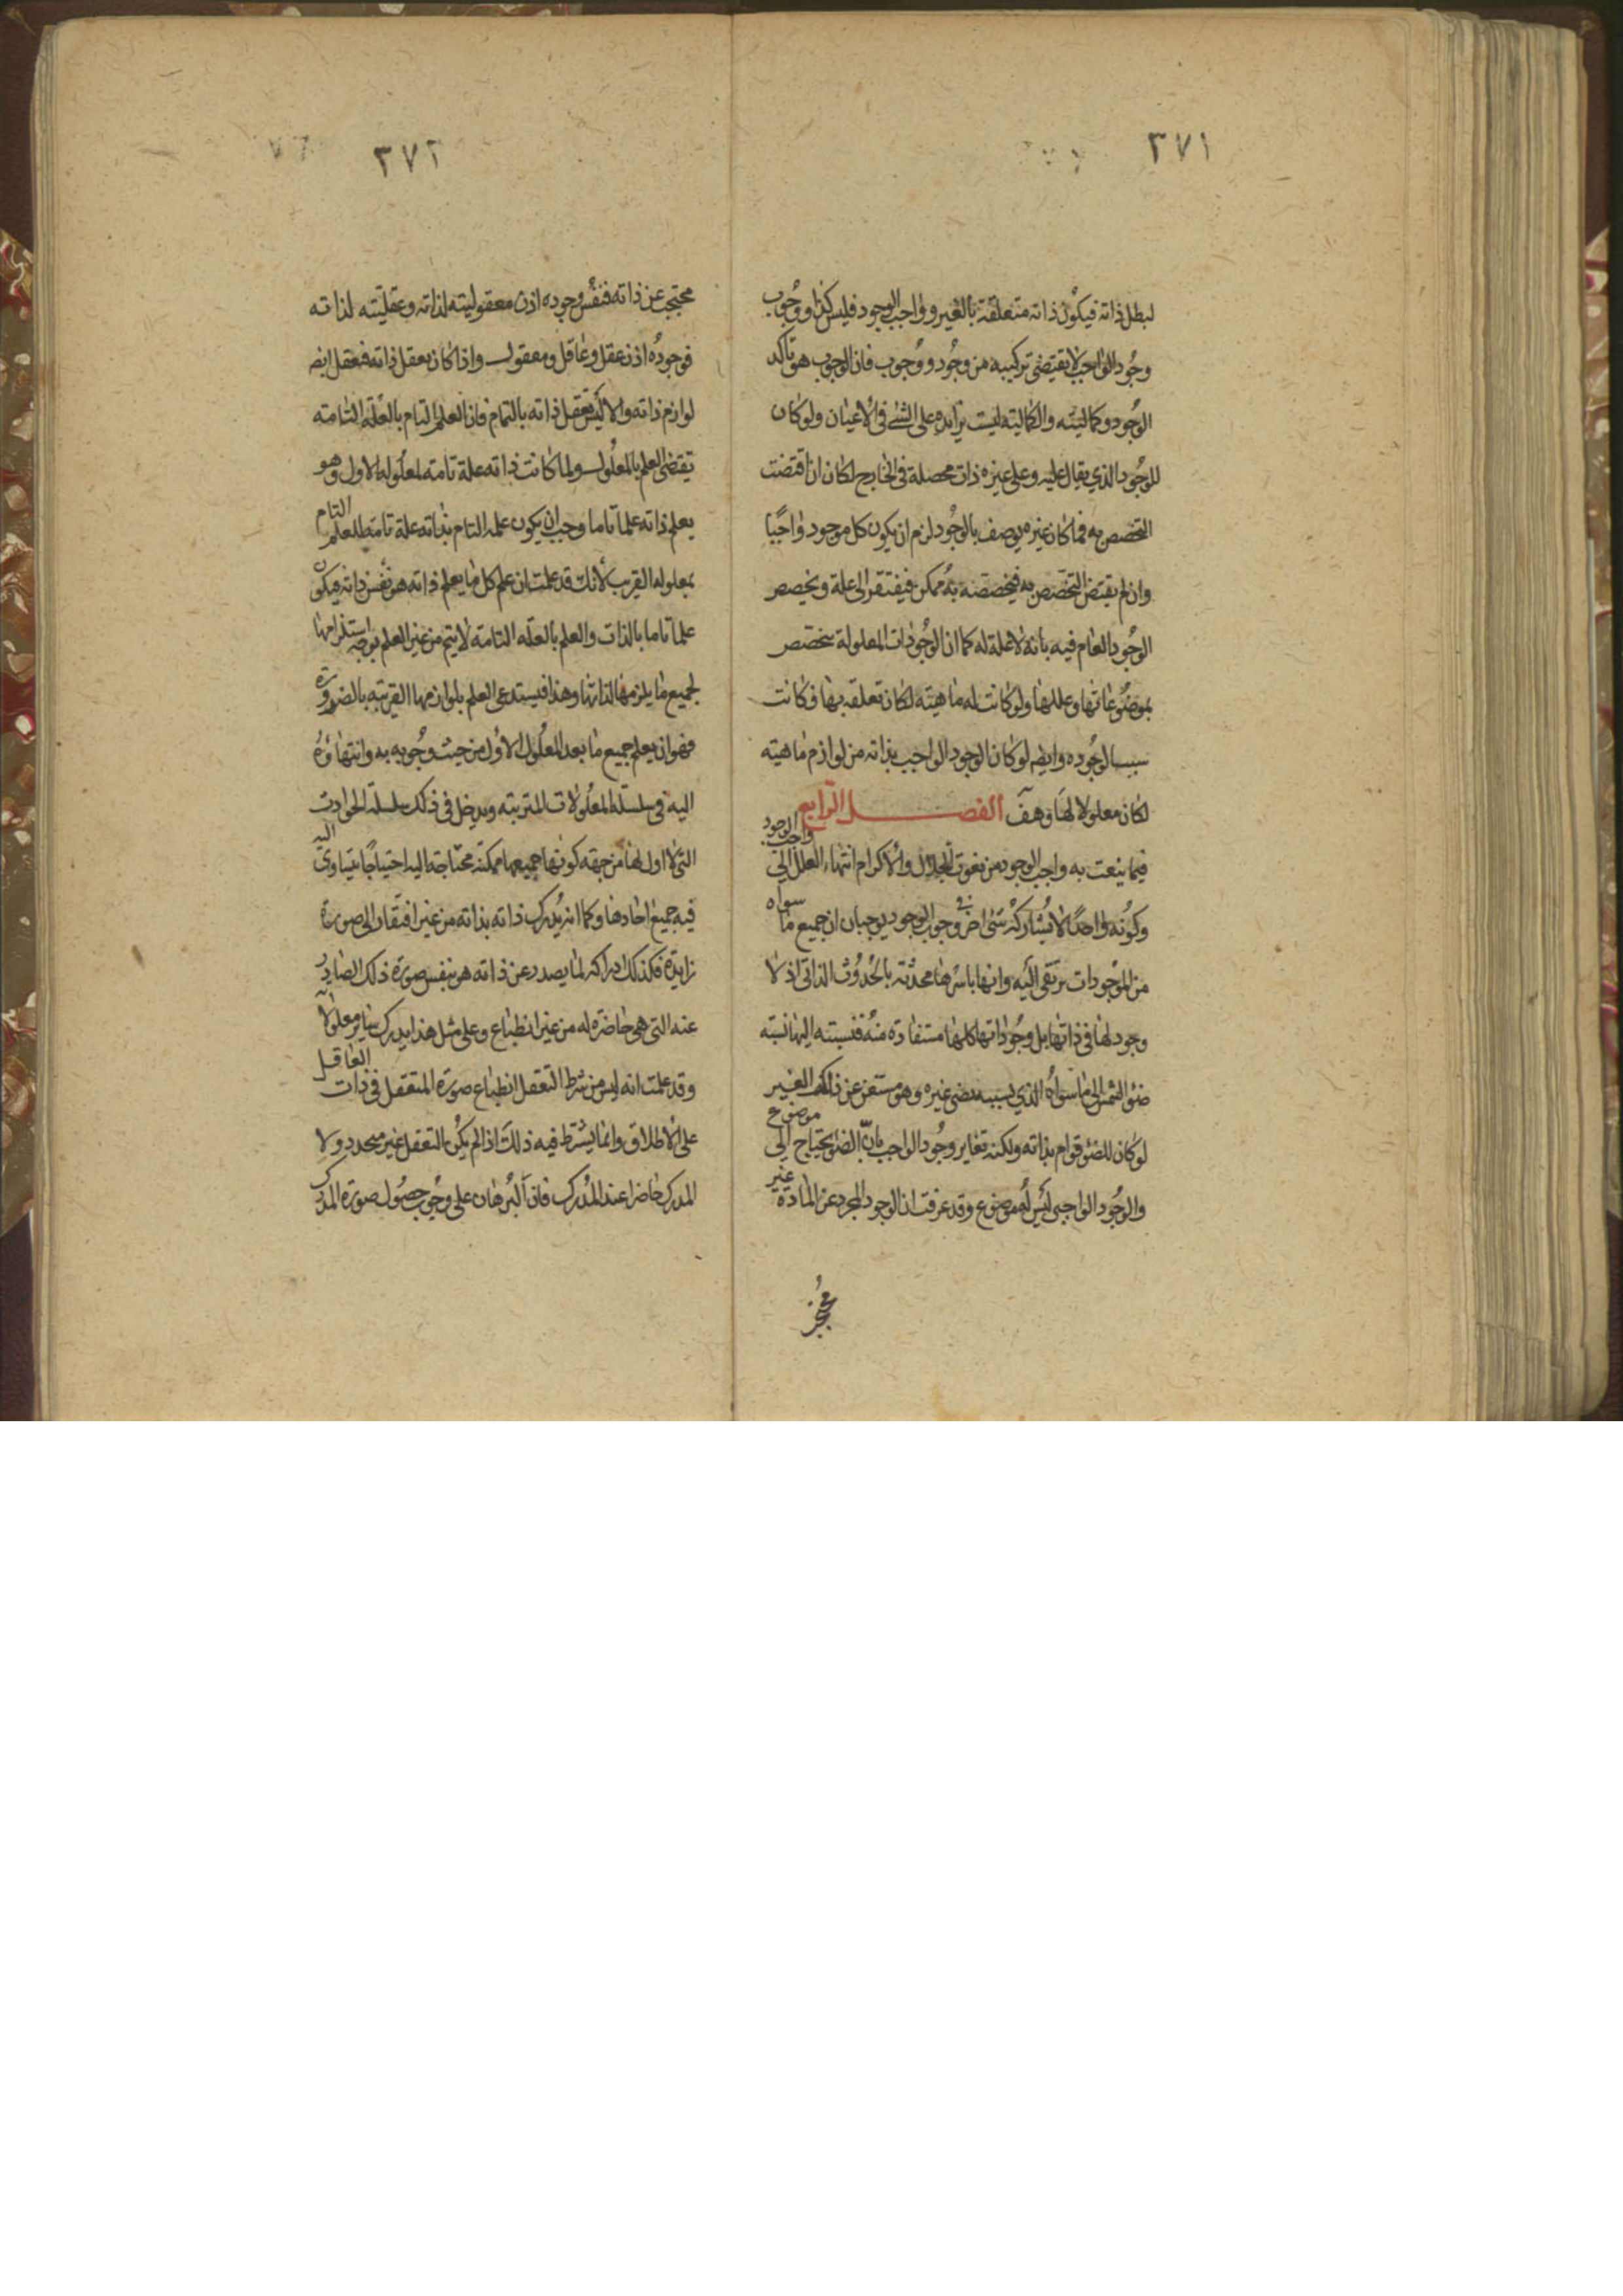 ٣٧١
لبطل ذاته فيكون ذاته متعلقة بالغير وواجب الوجود فليس كذا ووجوب
وجود الواجب لا يقتضى تركيبه من وجود ووجوب فان الوجوب هو تاكد
الوجود وكماليته والكمالية ليست بزايده على الشئ فى الاعيان ولو كان
للوجود الذي يقال عليه وعلى غيره ذات محصلة فى الخارج لكان ان اقتضت
التخصص به فما كان غيره يوصف بالوجود لزم ان يكون كل موجود واجبا
وان لم يقتض التخصص به فيخصصه به ممكن فيفتقر الى علة وتخصص
الوجود العام فيه بانه لا علة له كما ان الوجودات المعلولة تتخصص
بموضوعاتها وعللها ولو كانت له ماهيته لكان تعلقه بها فكانت
سببا لوجوده وايضا لو كان الوجود الواجب بذاته من لوازم ماهيته
لكان معلولا لها وهف الفصل الرابع
فيما ينعت به واجب الوجود من نعوت الجلال والاكرام انتهاء العلل الى واجب الوجود
وكونه واحدا لا يشاركه شى اخر فى وجوب الوجود يوجبان ان جميع ما سواه
من الموجودات ترتقى اليه وانها باسرها محدثة بالحدوث الذاتى اذ لا
وجود لها فى ذاتها بل وجوداتها كلها مستفادة منه فنسبته اليها نسبة
ضوء الشمس الى ما سواه الذي بسببه يضى غيره وهو مستغن عن ذلك الغير
لو كان للضوء قوام بذاته ولكنه تغاير وجود الواجب بان الضوء يحتاج الى موضوع
والوجود الواجبى ليس له موضوع وقد عرفت ان الوجود المجرد عن المادة غير
٣٧٢
محتجب عن ذاته فنفس وجوده اذن معقوليته لذاته وعقليته لذاته
فوجوده اذن عقل وعاقل ومعقول واذا كان يعقل ذاته فيعقل ايضا
لوازم ذاته والا ليس يعقل ذاته بالتمام فان العلم التام بالعلة التامة
تقتضى العلم بالمعلول ولما كانت ذاته علة تامة لمعلوله الاول وهو
يعلم ذاته علما تاما وجب ان يكون علمه التام بذاته علة تامة للعلم التام
بمعلوله القريب لانك قد علمت ان علم كل ما يعلم ذاته هو نفس ذاته فيكون
علما تاما بالذات والعلم بالعلة التامة لا يتم من غير العلم بوجه استلزامها
لجميع ما يلزمها لذاتها وهذا فيستدعى العلم بلوازمها القريبة بالضرورة
فهو اذن يعلم جميع ما بعد المعلول الاول من حيث وجوبه به وانتهاؤه
اليه فى سلسلة المعلولات المترتبه ويدخل فى ذلك سلسلة الحوادث
التى لا اول لها من جهة كونها جميعها ممكنة محتاجة اليه احتياجا يتساوى اليه
فيه جميع احادها وكما انه يدرك ذاته بذاته من غير افتقار الى صورة
زايدة فكذلك ادراكه لما يصدر عن ذاته هو بنفس صورة ذلك الصادر
عنه التى هى حاضرة له من غير انطباع وعلى مثل هذا يدرك ساير معلولاته
وقد علمت انه ليس من شرط التعقل انطباع صورة المتعقل فى ذات العاقل
على الاطلاق وانما يشترط فيه ذلك اذا لم يكن التعقل غير متجدد ولا
المدرك حاضرا عند المدرك فان البرهان على وجوب حصول صورة المدرك